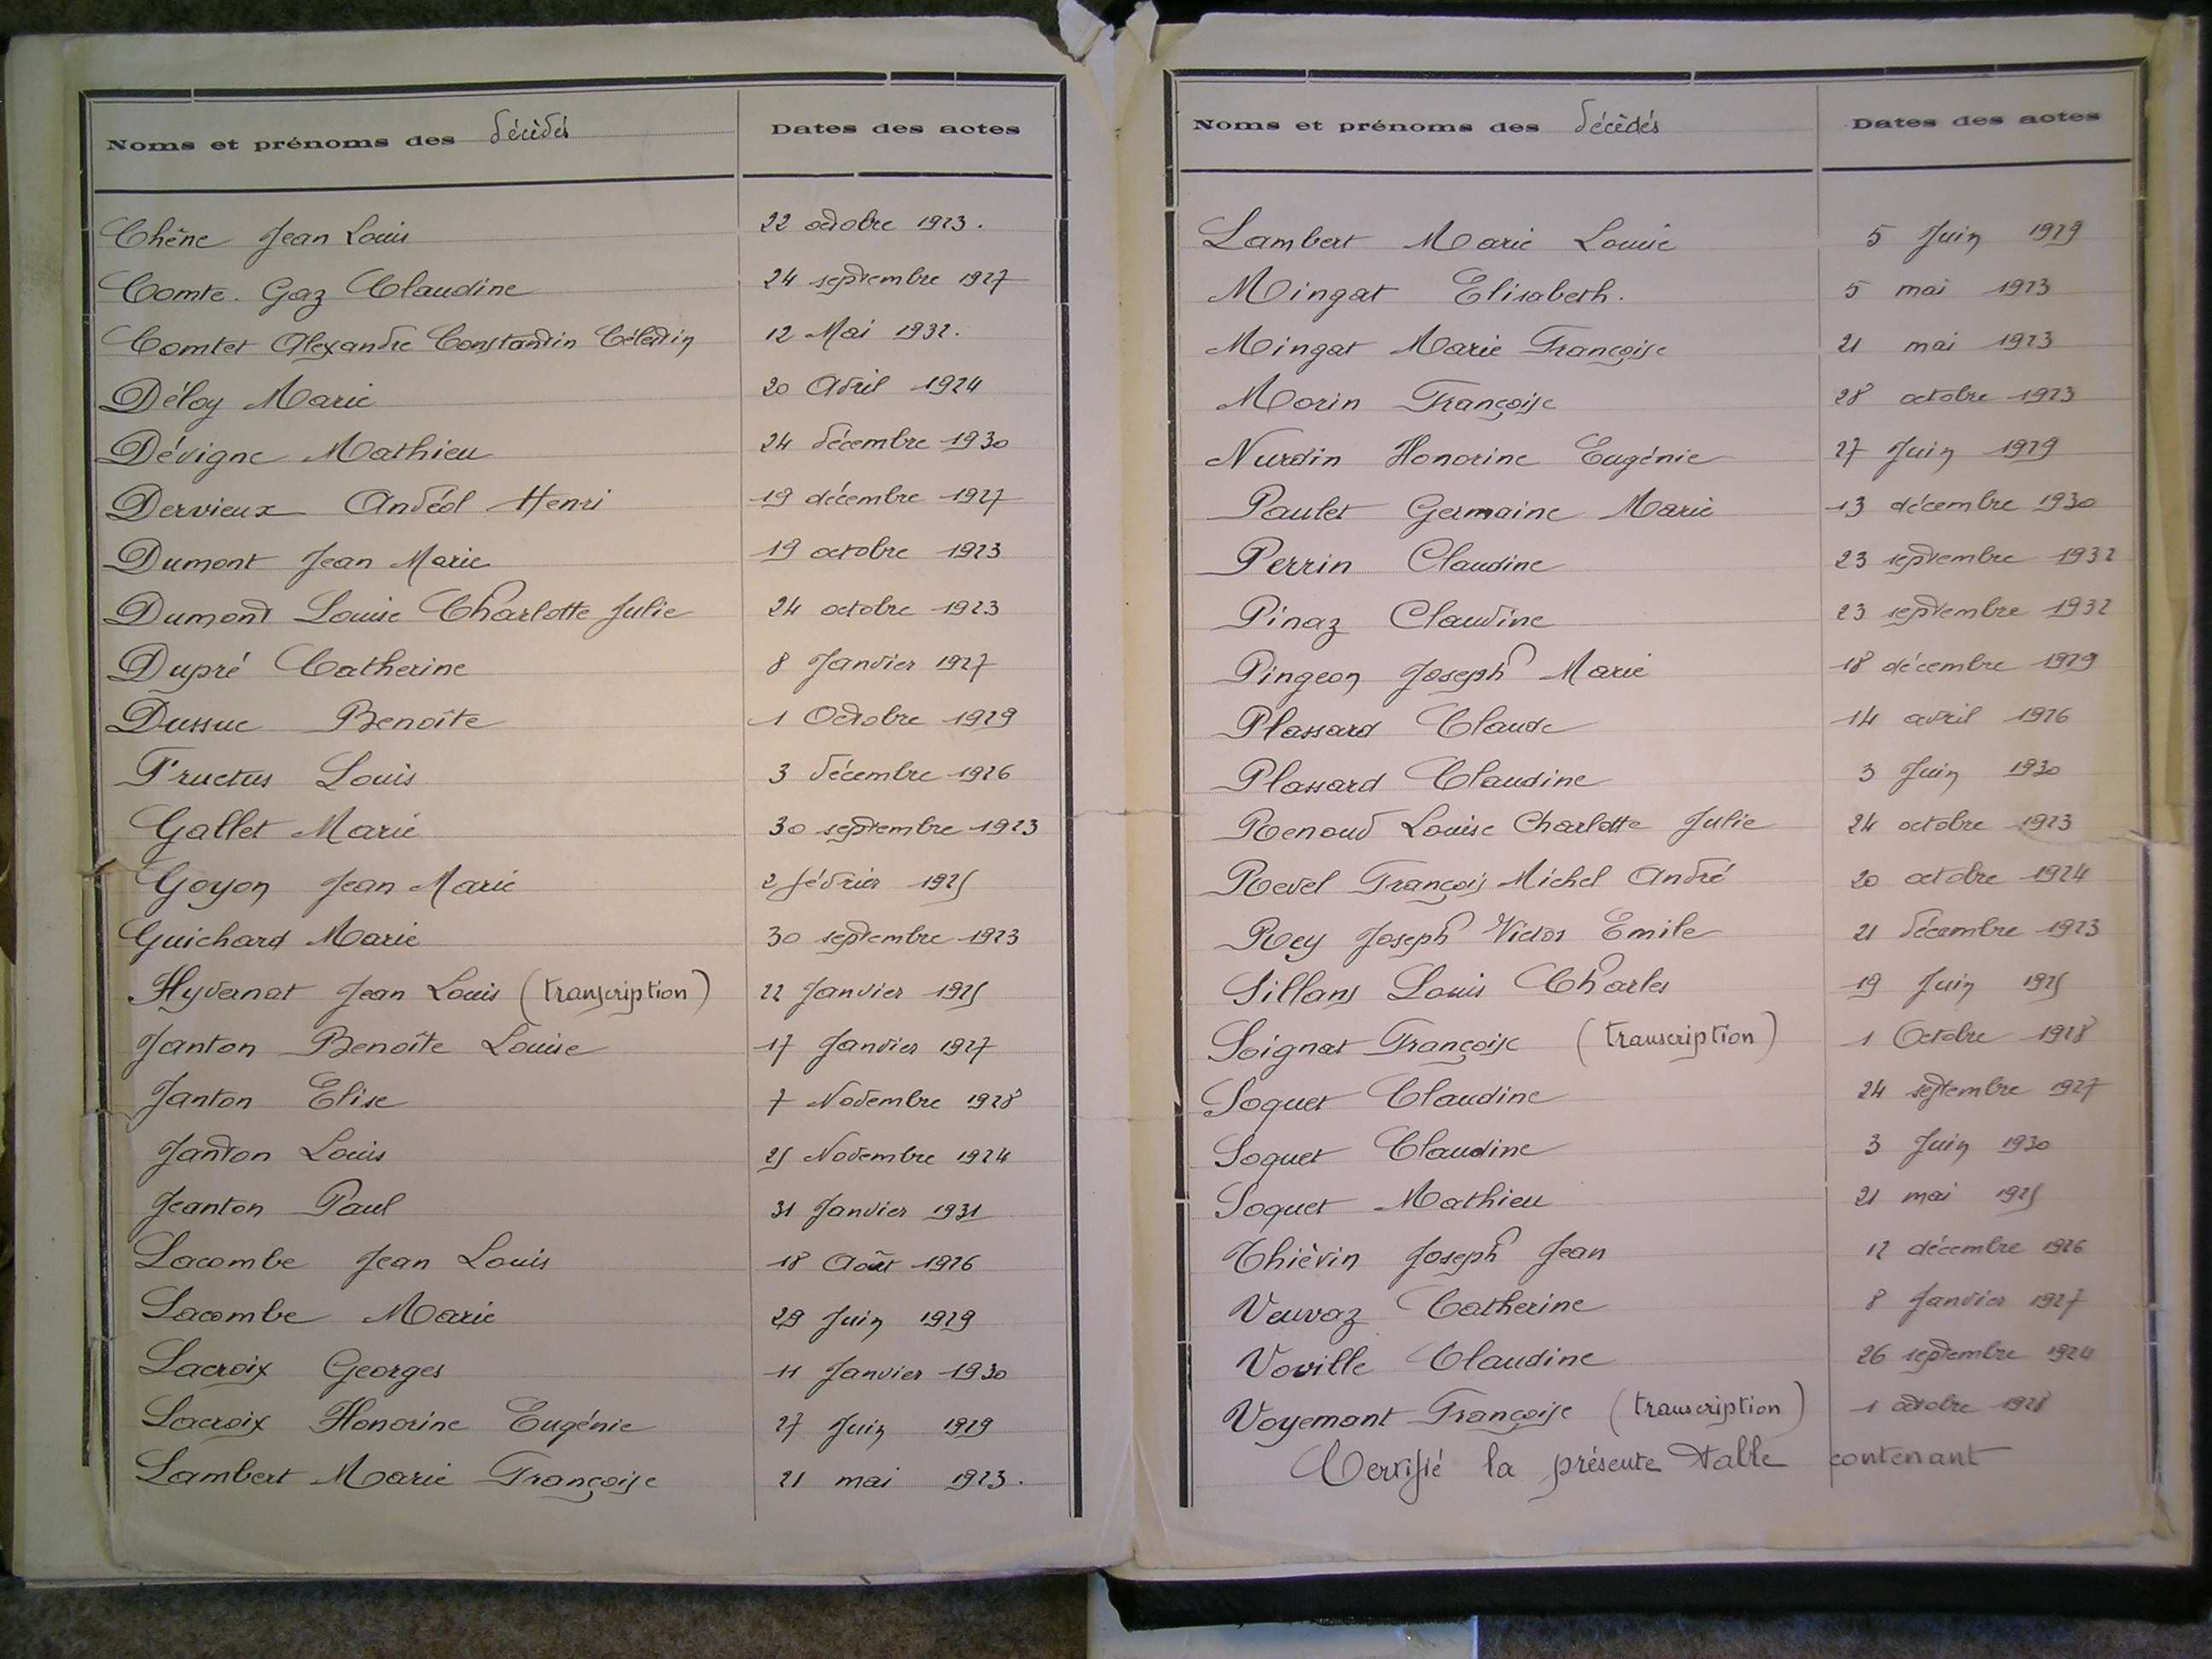 Noms et prénoms des décédés Dates des actes
Chêne Jean Louis 22 octobre 1923.
Comte. Gaz Claudine 24 septembre 1927
Comtet Alexandre Constantin Célestin 12 Mai 1932.
Déloy Marie 20 Avril 1924
Dévigne Mathieu 24 décembre 1930
Dervieux Andéol Henri 19 décembre 1927
Dumont Jean Marie 19 octobre 1923
Dumont Louise Charlotte Julie 24 octobre 1923
Dupré Catherine 8 Janvier 1927
Dussuc Benoîte 1 Octobre 1929
Fructus Louis 3 décembre 1926
Gallet Marie 30 septembre 1923
Goyon Jean Marie 2 février 1925
Guichard Marie 30 septembre 1923
Hyvernat Jean Louis (transcription) 22 Janvier 1925
Janton Benoîte Louise 17 Janvier 1927
Janton Elise 7 Novembre 1928
Janton Louis 25 Novembre 1924
Jeanton Paul 31 Janvier 1931
Lacombe Jean Louis 18 Août 1926
Lacombe Marie 29 Juin 1929
Lacroix Georges 11 Janvier 1930
Lacroix Honorine Eugénie 27 Juin 1929
Lambert Marie Françoise 21 mai 1923.
Noms et prénoms des décédés Dates des actes
Lambert Marie Louise 5 Juin 1929
Mingat Elisabeth. 5 mai 1923
Mingat Marie Françoise 21 mai 1923
Morin Françoise 28 octobre 1923
Nurdin Honorine Eugénie 27 Juin 1929
Paulet Germaine Marie 13 décembre 1930
Perrin Claudine 23 septembre 1932
Pinaz Claudine 23 septembre 1932
Pingeon Joseph Marie 18 décembre 1929
Plassard Claude 14 avril 1926
Plassard Claudine 3 Juin 1930
Renoud Louise Charlotte Julie 24 octobre 1923
Revel François Michel André 20 octobre 1924
Rey Joseph Victor Emile 21 décembre 1923
Sillans Louis Charles 19 Juin 1925
Soignat Françoise (transcription) 1 Octobre 1928
Soquet Claudine 24 septembre 1927
Soquet Claudine 3 Juin 1930
Soquet Mathieu 21 mai 1925
Thiévin Joseph Jean 12 décembre 1926
Veuvaz Catherine 8 Janvier 1927
Voville Claudine 26 septembre 1924
Voyemant Françoise (transcription) 1 octobre 1928
Certifié la présente table contenant